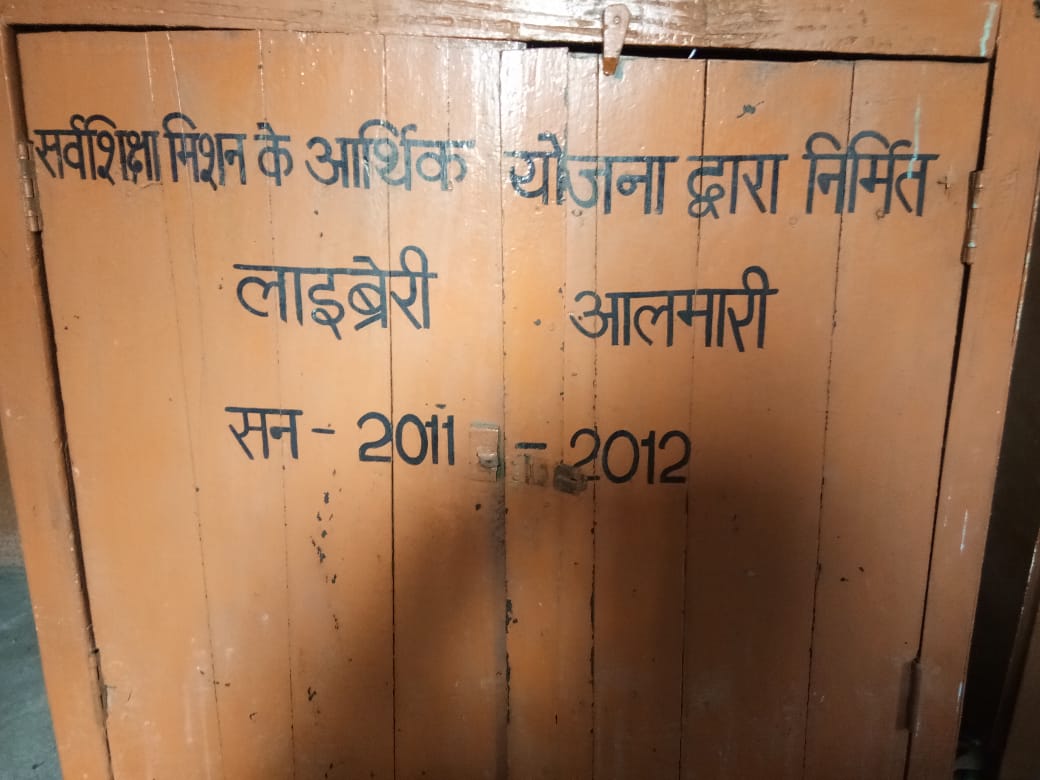 सर्वशिक्षा मिशन के आर्थिक यौजना द्वारा निर्मित
लाइब्रेरी आलमारी
सन - 2011 - 2012